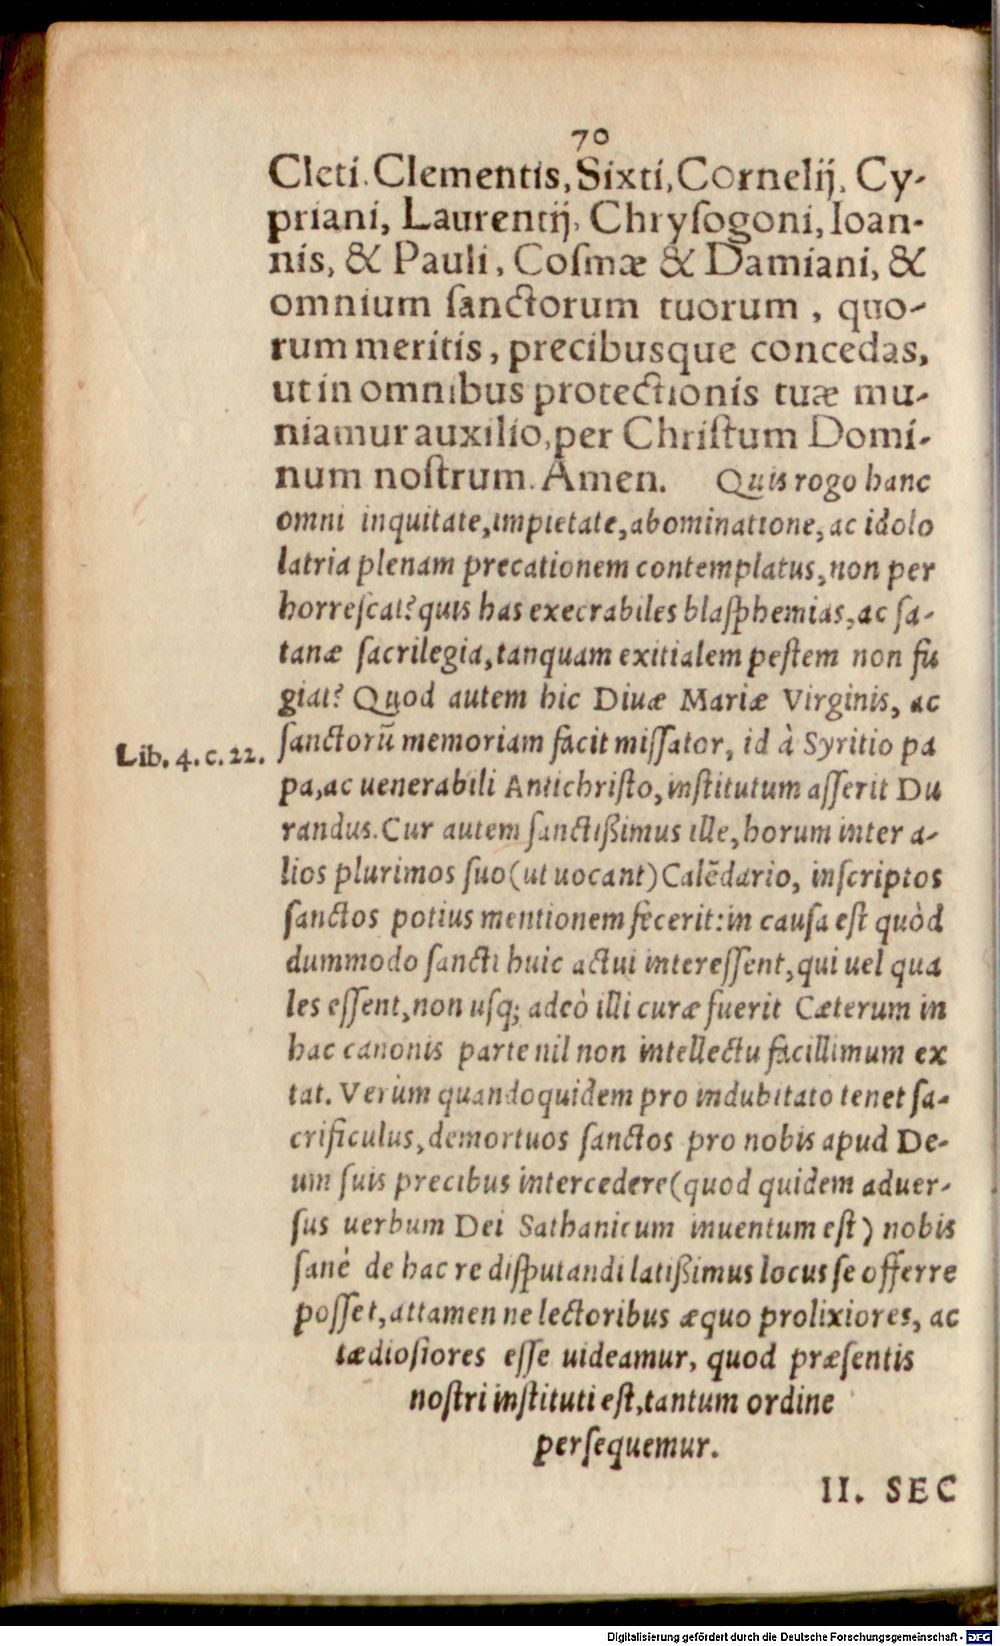 70
Cleti. Clementis, Sixti, Cornelij, Cy-
priani, Laurentij, Chryſogoni, Ioan-
nis, & Pauli, Coſmæ & Damiani, &
omnium ſanctorum tuorum, quo-
rum meritis, precibusque concedas,
ut in omnibus protectionis tuæ mu-
niamur auxilio, per Chriſtum Domi-
num noſtrum. Amen. Quis rogo hanc
omni inquitate, impietate, abominatione, ac idolo
latria plenam precationem contemplatus, non per
horreſcat? quis has execrabiles blaſphemias, ac ſa-
tanæ ſacrilegia, tanquam exitialem peſtem non fu
giat? Quod autem hic Diuæ Mariæ Virginis, ac
ſanctorū memoriam facit miſſator, id à Syritio pa
Lib. 4. c. 22.
pa, ac uenerabili Antichriſto, inſtitutum aſſerit Du
randus. Cur autem ſanctißimus ille, horum inter a-
lios plurimos ſuo (ut uocant) Calēdario, inſcriptos
ſanctos potius mentionem fecerit: in cauſa eſt quòd
dummodo ſancti huic actui intereſſent, qui uel qua
les eſſent, non uſq; adeò illi curæ fuerit Cæterum in
hac canonis parte nil non intellectu facillimum ex
tat. Verùm quandoquidem pro indubitato tenet ſa-
crificulus, demortuos ſanctos pro nobis apud De-
um ſuis precibus intercedere (quod quidem aduer-
ſus uerbum Dei Sathanicum inuentum eſt) nobis
ſanè de hac re diſputandi latißimus locus ſe offerre
poſſet, attamen ne lectoribus æquo prolixiores, ac
tædioſiores eſſe uideamur, quod præſentis
noſtri inſtituti eſt, tantum ordine
perſequemur.
II. SEC
Digitalisierung gefördert durch die Deutsche Forschungsgemeinschaft - DFG